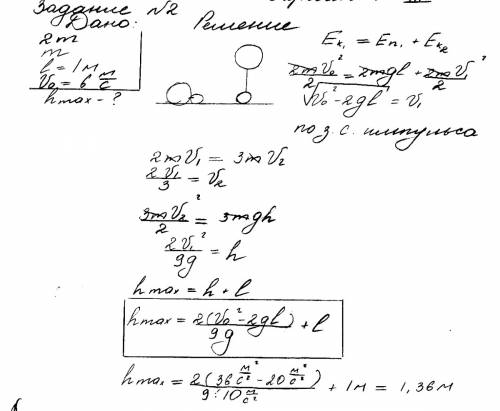 Задание №2
Дано:
Решение
2m
m
l = 1м
V₀ = 6 м/с
hmax - ?
Eк₁ = Eп₁ + Eк₂
2mV₀²/2 = 2mgl + 2mV₁²/2
√(V₀² - 2gl) = V₁
по з. с. импульса
2mV₁ = 3mV₂
2V₁/3 = V₂
3mV₂²/2 = 3mgh
2V₁²/9g = h
hmax = h + l
hmax = 2(V₀² - 2gl)/9g + l
hmax = 2(36 м²/с² - 20 м²/с²)/9·10 м/с² + 1м = 1,36м